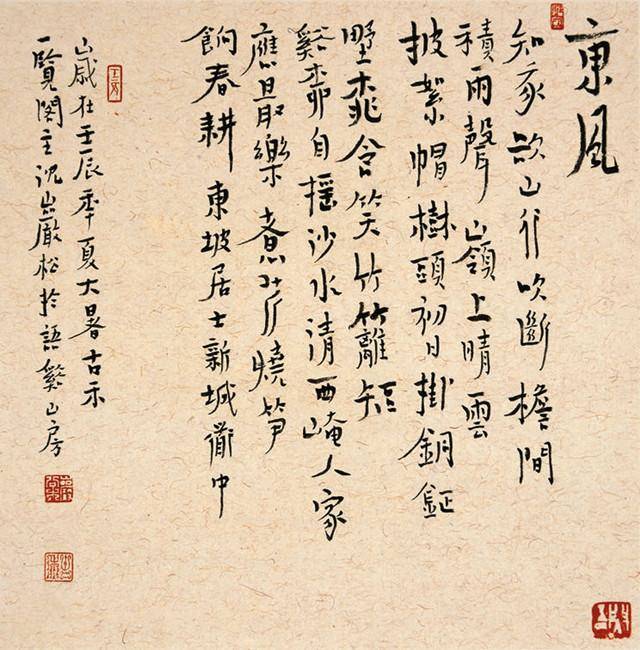 東風
知我欲山行吹斷檐間
積雨聲嶺上晴雲
披絮帽樹頭初日掛銅鉦
野桃含笑竹籬短
谿柳自搖沙水清西崦人家
應最樂煮芹燒笋
餉春耕東坡居士新城道中
歲在壬辰季夏大暑古禾
一覽閣主沈巖松於語谿山房